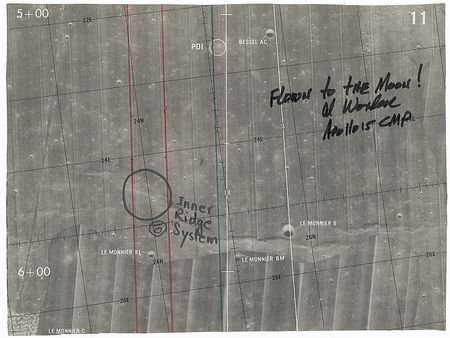 5+00
22E
11
PDI
BESSEL AC
FLOWN to tHE MOON!
Al Worden
Apollo 15 CMP.
24N
24E
24E
13
Inner
Ridge
6 System
LE MONNIER B
26N
LE MONNIER BL
24N
LE MONNIER BM
26E
6+00
26E
26E
LE MONNIER C